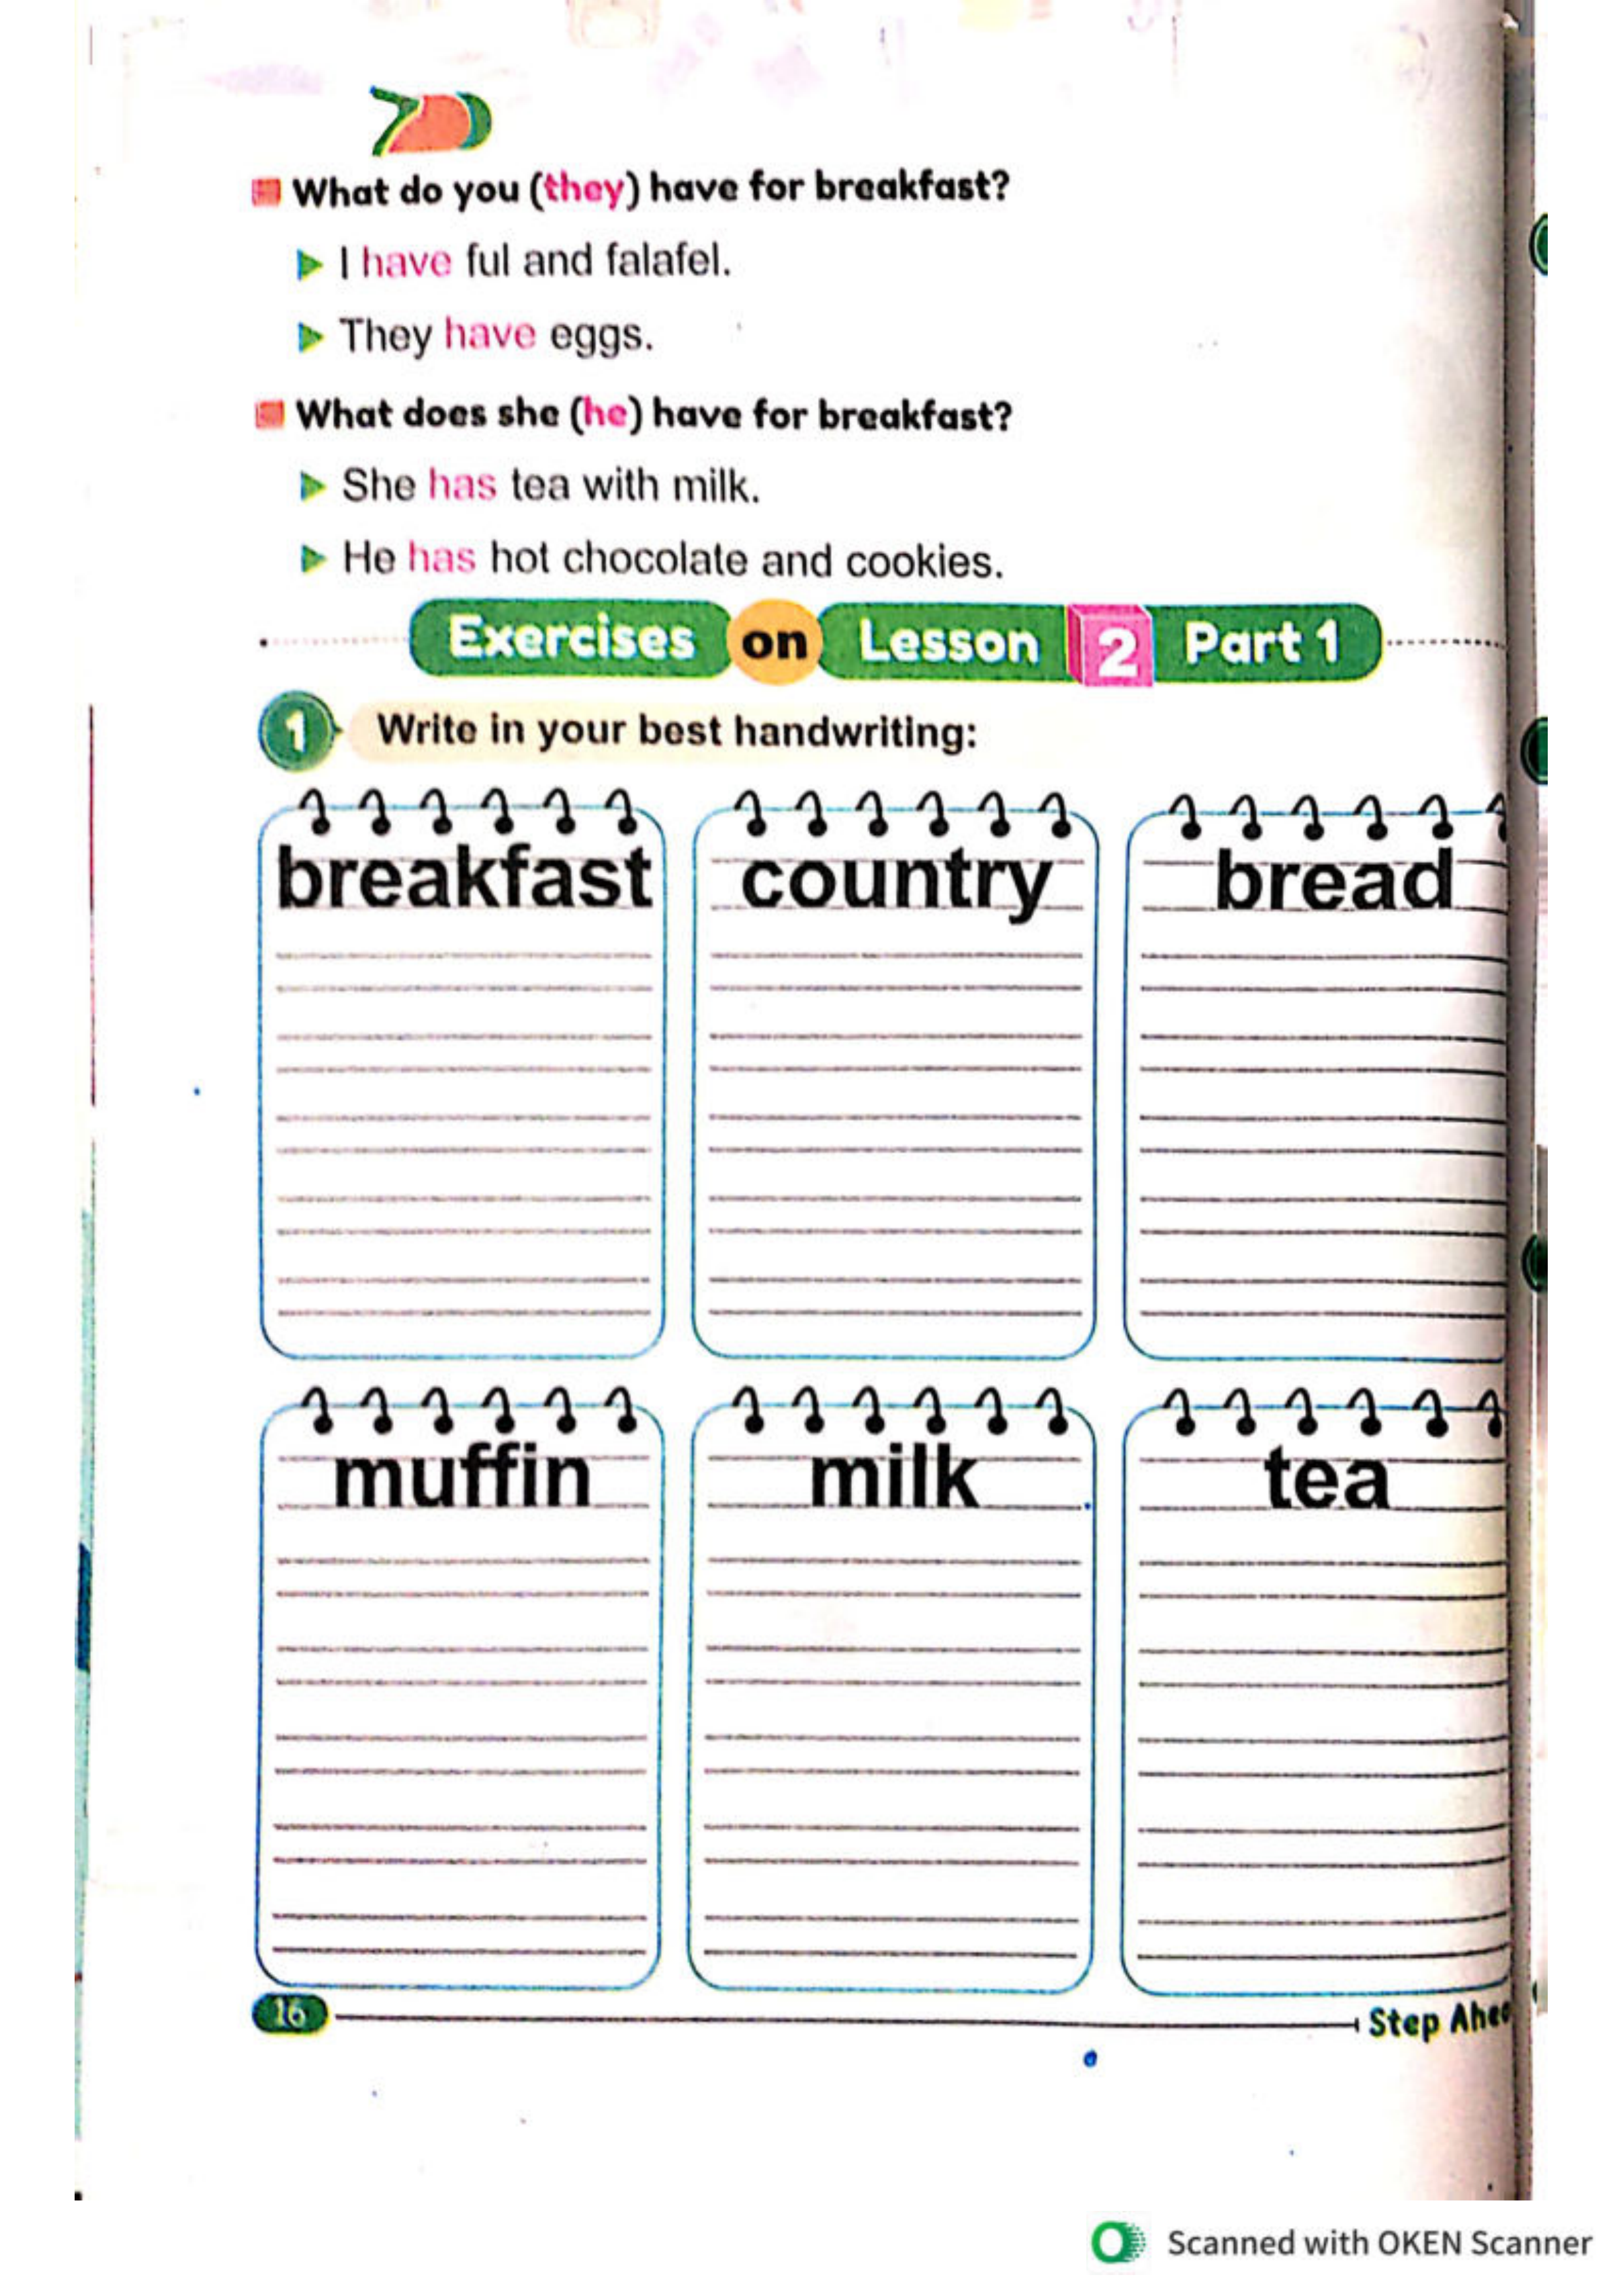 What do you (they) have for breakfast?
I have ful and falafel.
They have eggs.
What does she (he) have for breakfast?
She has tea with milk.
He has hot chocolate and cookies.
Exercises on Lesson 2 Part 1
1 Write in your best handwriting:
breakfast country bread
muffin milk tea
16 Step
Scanned with OKEN Scanner